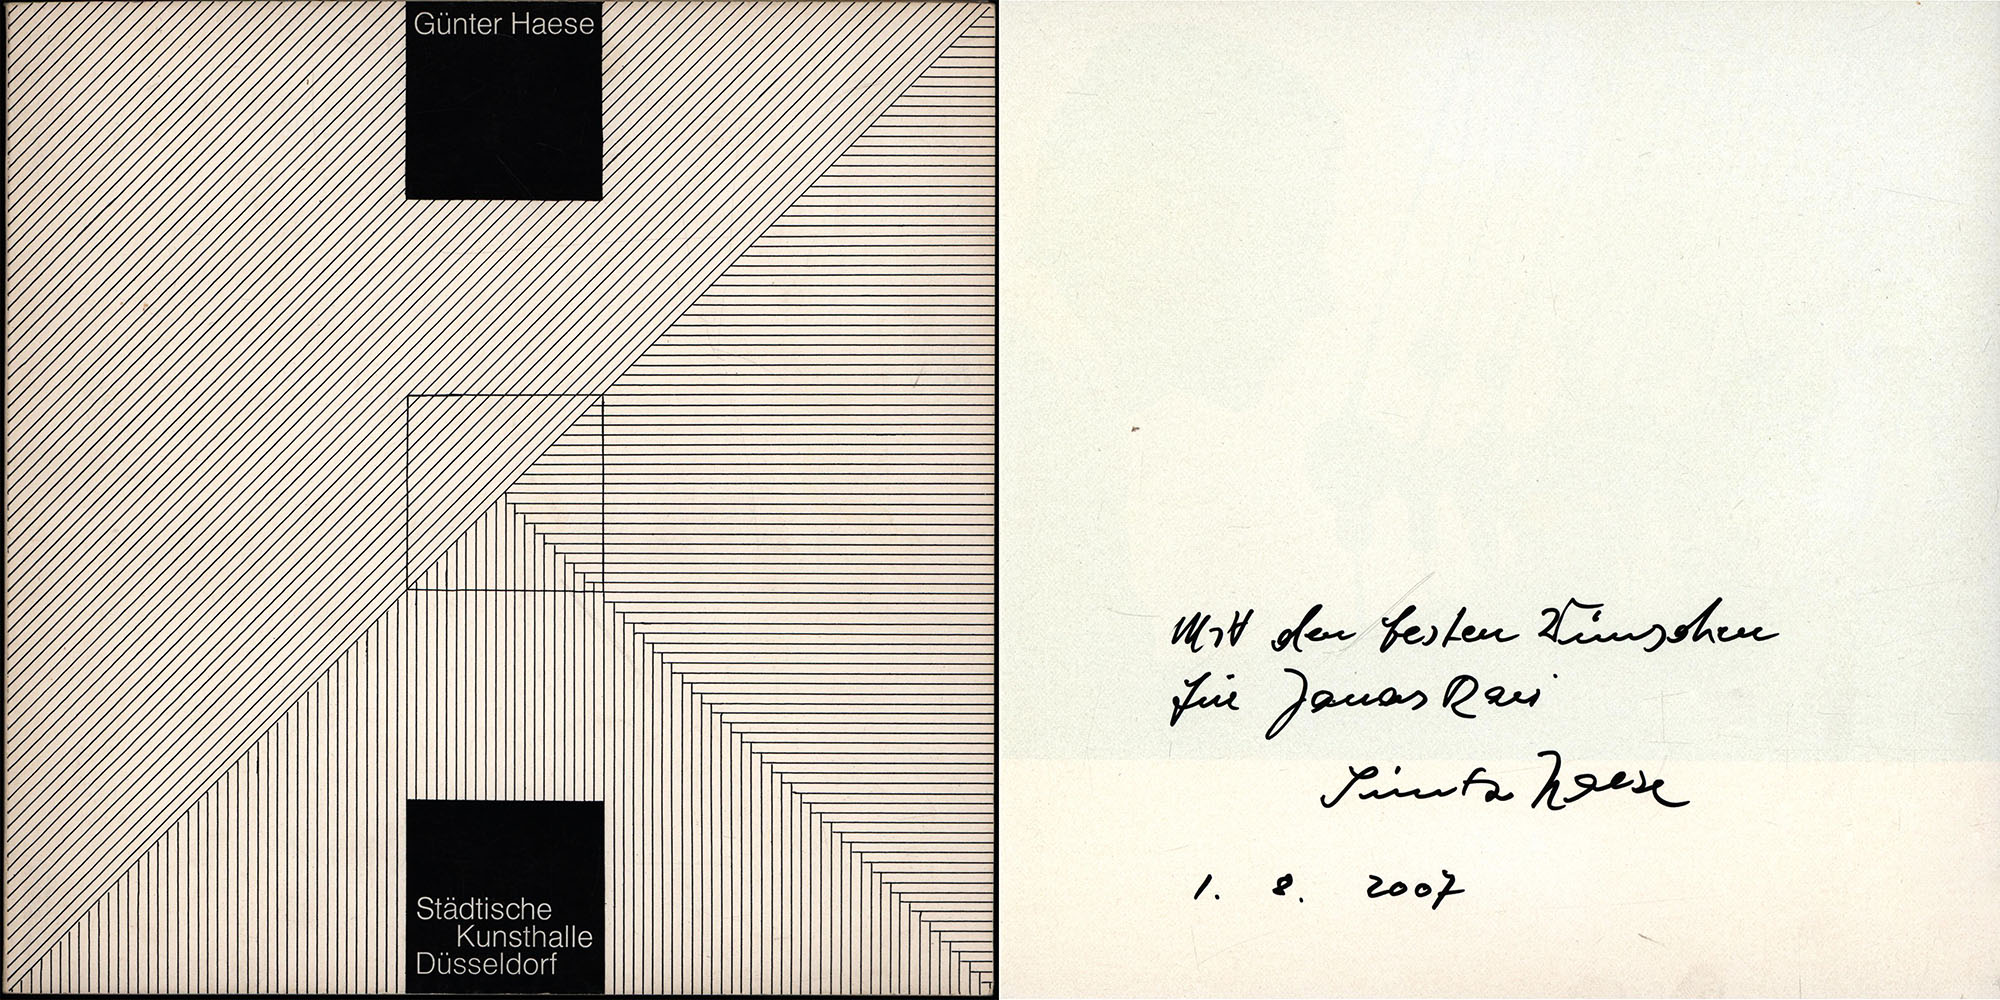 Günter Haese
Städtische
Kunsthalle
Düsseldorf
Mit den besten Wünschen
für Jonas Ravi
Günter Haese
1. 8. 2007